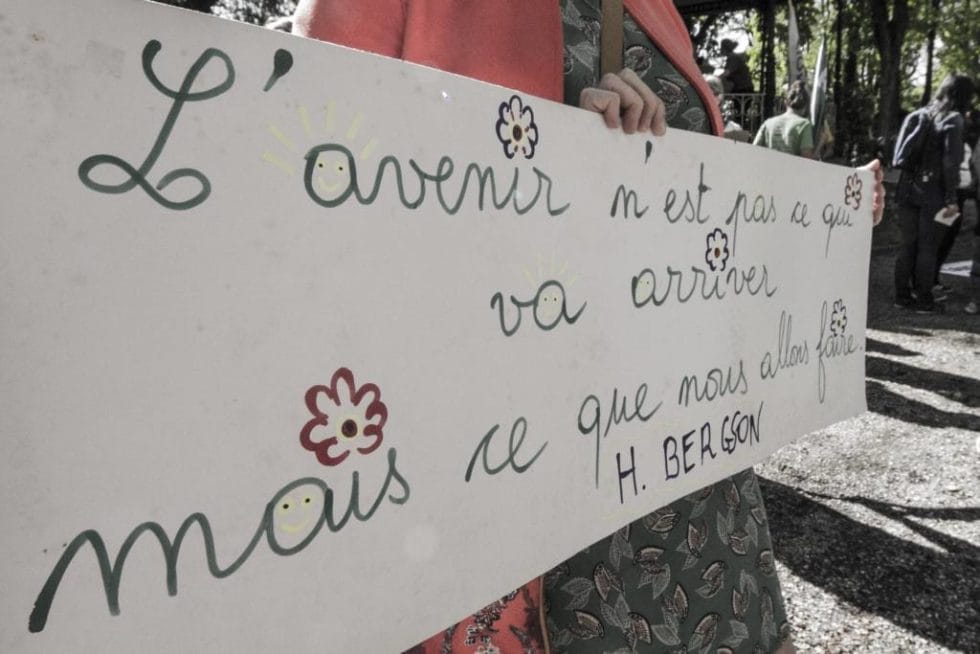 L'avenir n'est pas ce qui
va arriver
mais ce que nous allons faire.
H. BERGSON